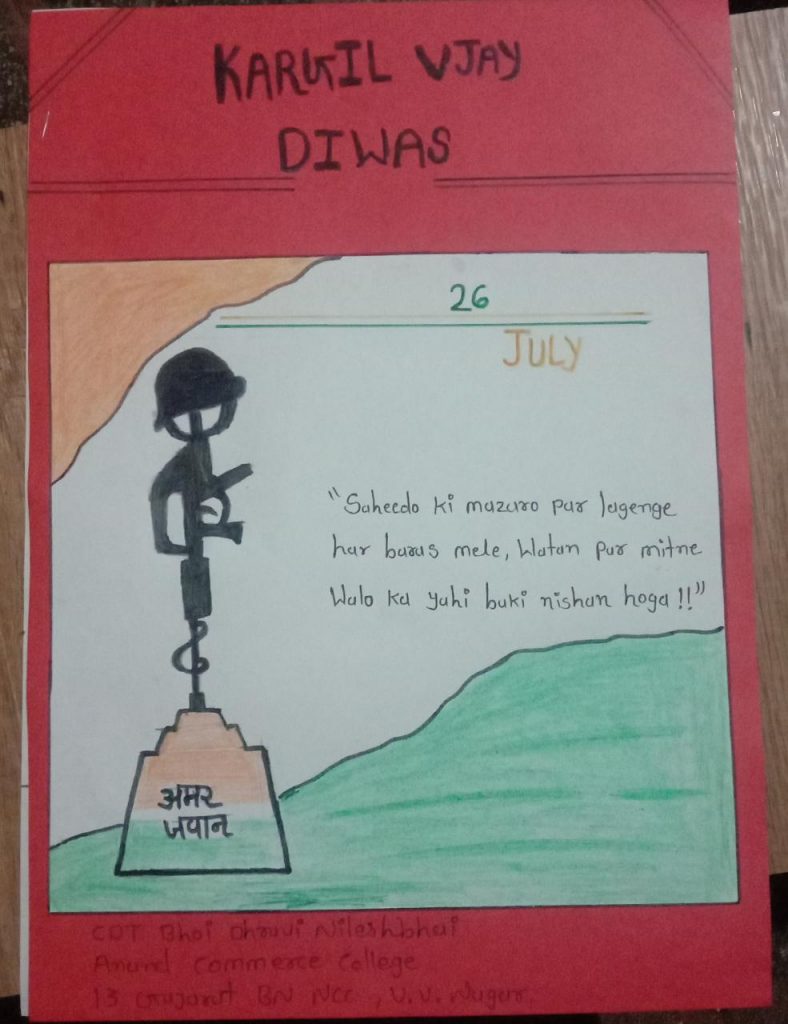 KARGIL VJAY
DIWAS
26
JULY
"Saheedo ki mazaro par lagenge
har baras mele, Watan par mitne
Walo ka yahi baki nishan hoga !!"
अमर
जवान
CDT Bhoi Dhruvi Nileshbhai
Anand Commerce College
13 Gujarat BN NCC, V.V. Nagar